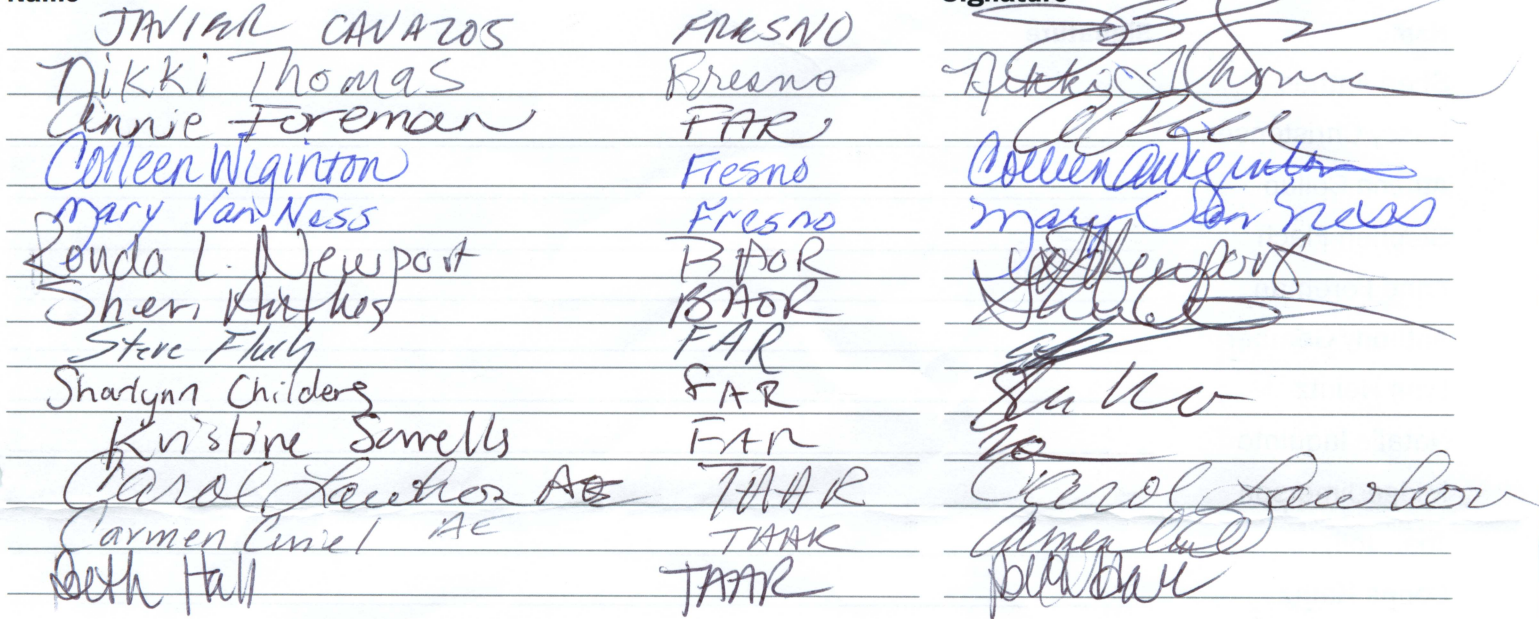 Name Signature
JAVIER CAVAZOS FRESNO
Nikki Thomas Fresno Nikki Thomas
Annie Foreman FAR
Colleen Wiginton Fresno Colleen Wiginton
Mary Van Ness Fresno Mary Van Ness
Ronda L. Newport BAOR Newport
Sheri BAOR
Steve FAR
Sharlynn Childers FAR
Kristine Sorrells FAR
Carol Lawhon AE TAAR Carol Lawhon
Carmen Curiel AE TAAR Carmen Curiel
Beth Hall TAAR Beth Hall